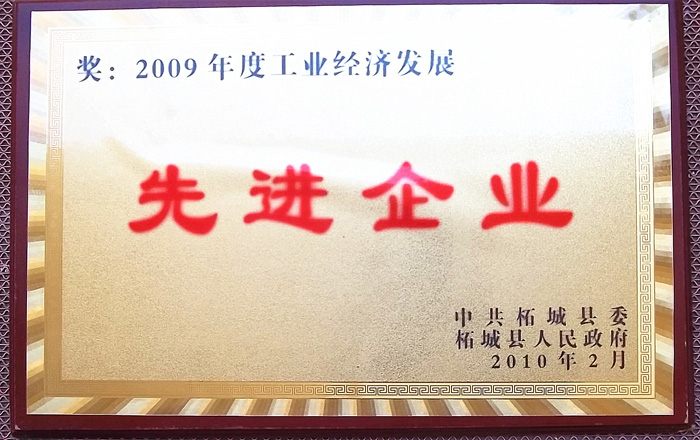 奖：2009年度工业经济发展
先进企业
中共柘城县委
柘城县人民政府
2010年2月